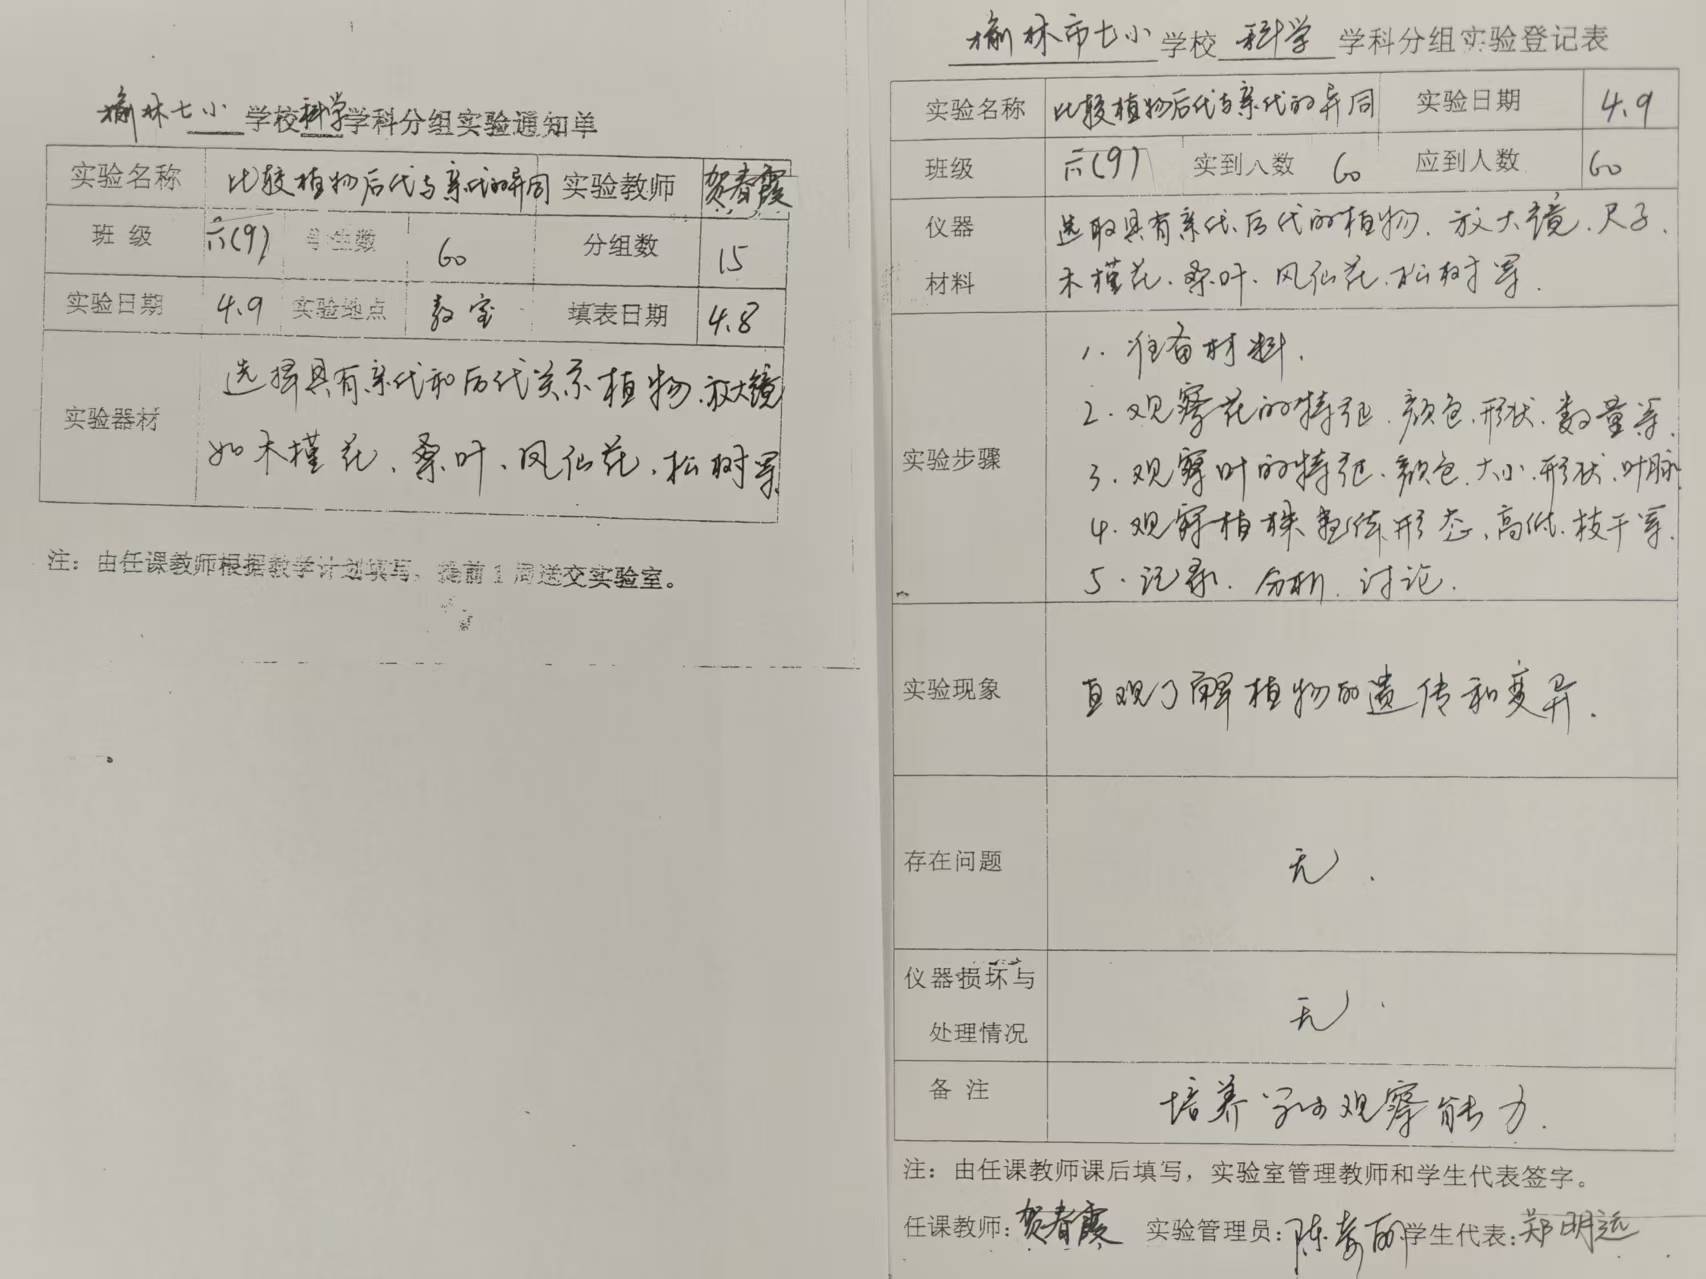 榆林七小学校科学学科分组实验通知单
实验名称 比较植物后代与亲代的异同 实验教师 贺春霞
班级 六(9) 学生数 60 分组数 15
实验日期 4.9 实验地点 教室 填表日期 4.8
实验器材
选择具有亲代和后代关系植物.放大镜
如木槿花、桑叶、凤仙花、松树等
注：由任课教师根据教学计划填写，提前1周送交实验室。
榆林市七小学校科学学科分组实验登记表
实验名称 比较植物后代与亲代的异同 实验日期 4.9
班级 六(9) 实到人数 60 应到人数 60
仪器 选取具有亲代、后代的植物、放大镜、尺子、
材料 木槿花、桑叶、凤仙花、松树等.
实验步骤
1. 准备材料.
2. 观察花的特征.颜色.形状.数量等.
3. 观察叶的特征.颜色.大小.形状.叶脉
4. 观察植株整体形态、高低.枝干等.
5. 记录.分析.讨论.
实验现象 直观了解植物的遗传和变异.
存在问题 无.
仪器损坏与
处理情况 无.
备注 培养学生观察能力.
注：由任课教师课后填写，实验室管理教师和学生代表签字。
任课教师：贺春霞 实验管理员：陈 丽 学生代表：郑明远